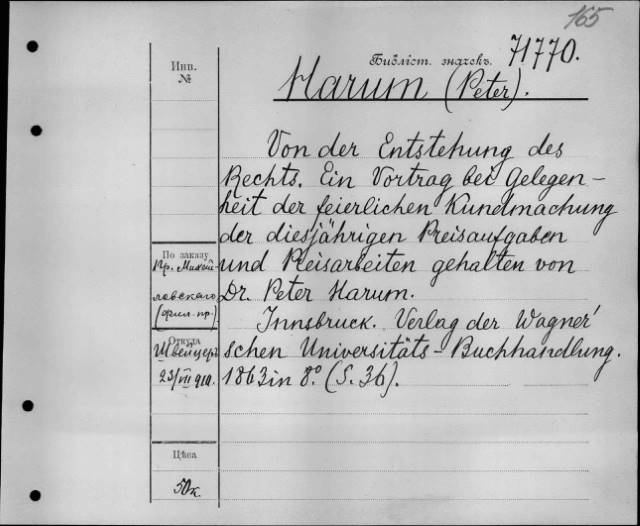 165
Библіот. значекъ. 71770.
Harum (Peter).
Инв.
№
Von der Entstehung des
Rechts. Ein Vortrag bei Gelegen-
heit der feierlichen Kundmachung
der diesjährigen Preisaufgaben
und Preisarbeiten gehalten von
Dr. Peter Harum.
Innsbruck. Verlag der Wagner'
schen Universitäts-Buchhandlung.
1863 in 8.° (S. 36).
По заказу
Пр. Михай-
ловскаго
(фил. пр.)
Откуда
Швейцеръ
23/VII 910.
Цѣна
50к.